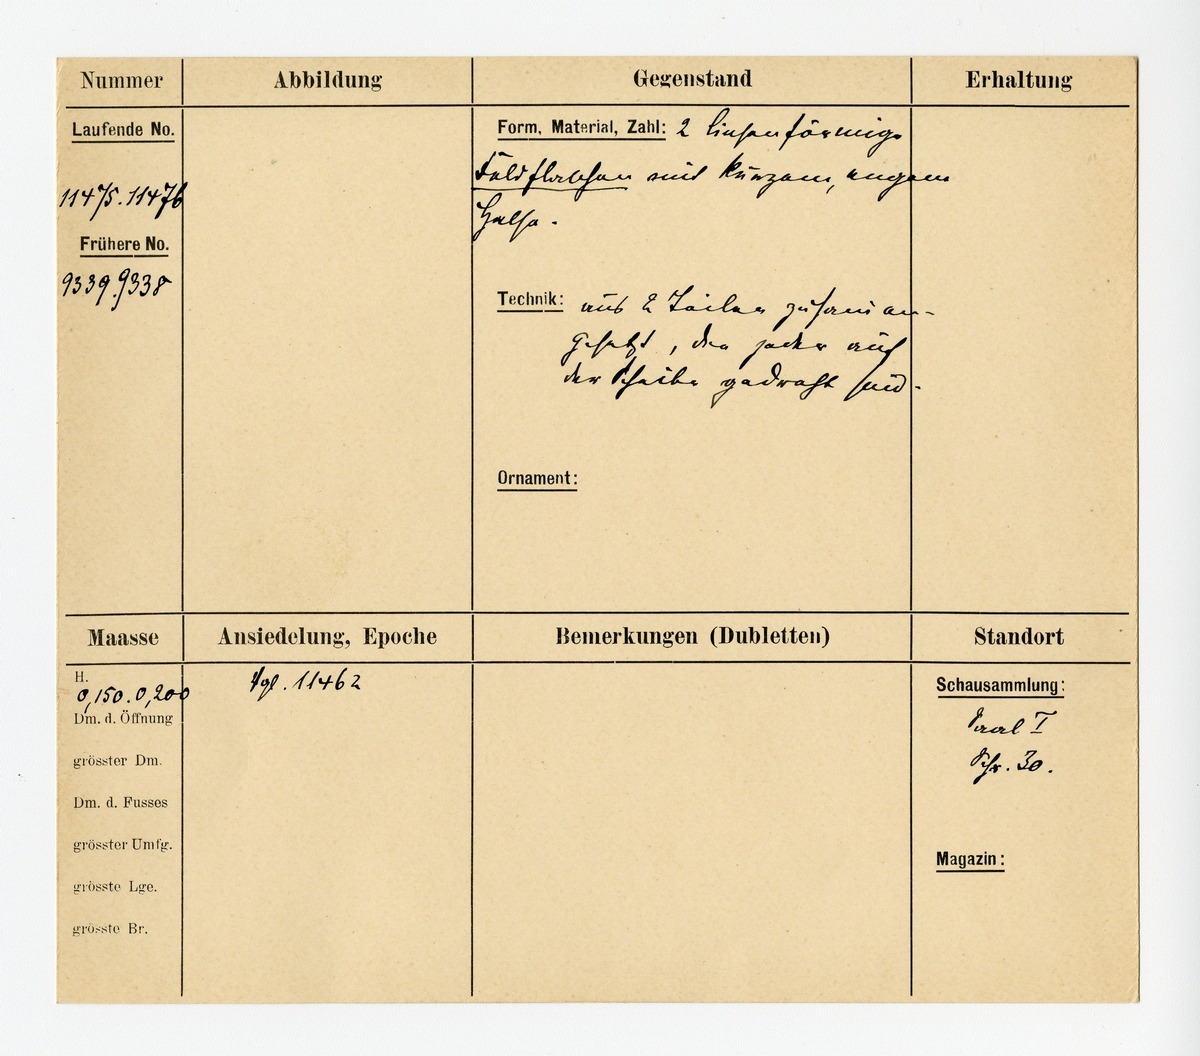 Nummer
Abbildung
Gegenstand
Erhaltung
Laufende No.
11475. 11476
Frühere No.
9339. 9338
Form, Material, Zahl: 2 linsenförmige
Feldflaschen mit kurzem, engem
Halse.
Technik: aus 2 Teilen zusammen-
gesetzt, die jeder auf
der Scheibe gedreht sind.
Ornament:
Maasse
Ansiedelung, Epoche
Bemerkungen (Dubletten)
Standort
H.
0,150. 0,200
Dm. d. Öffnung
grösster Dm.
Dm. d. Fusses
grösster Umfg.
grösste Lge.
grösste Br.
Vgl. 11462
Schausammlung:
Saal I
Schr. 30.
Magazin: